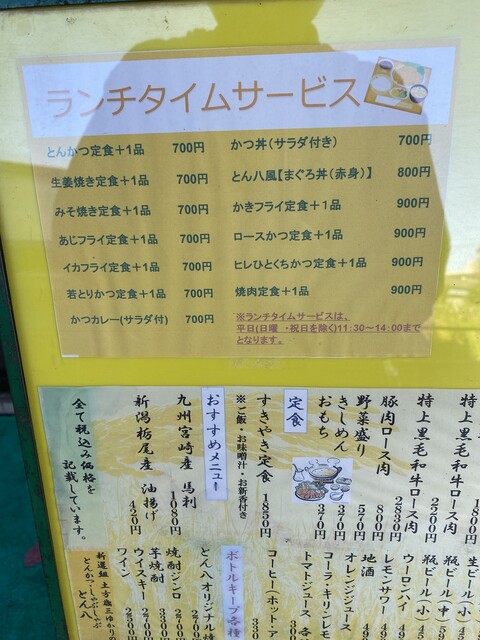 ランチタイムサービス
とんかつ定食＋1品 700円
生姜焼き定食＋1品 700円
みそ焼き定食＋1品 700円
あじフライ定食＋1品 700円
イカフライ定食＋1品 700円
若とりかつ定食＋1品 700円
かつカレー(サラダ付) 700円
かつ丼(サラダ付き) 700円
とん八風【まぐろ丼(赤身)】 800円
かきフライ定食＋1品 900円
ロースかつ定食＋1品 900円
ヒレひとくちかつ定食＋1品 900円
焼肉定食＋1品 900円
※ランチタイムサービスは、
平日(日曜 ・祝日を除く)11:30～14:00まで
となります。
特上黒毛和牛ロース肉 2200円
豚肉ロース肉 2830円
野菜盛り 800円
きしめん 570円
おもち 370円
定食
すきやき定食 1850円
※ご飯・お味噌汁・お新香付き
おすすめメニュー
九州宮崎産 馬刺 1080円
新潟栃尾産 油揚げ 420円
全て税込み価格を
記載しています。
生ビール(
瓶ビール(中)
瓶ビール(小)
ウーロンハイ
レモンサワー
地酒
オレンジジュース
コーラ・キリンレモン
トマトジュース
コーヒー(ホット・ア
ボトルキープ各種
とん八オリジナル焼
焼酎ジンロ
芋焼酎
ウイスキー
ワイン
新選組 土方歳三ゆかりの
とんかつ・しゃぶしゃぶ
とん八